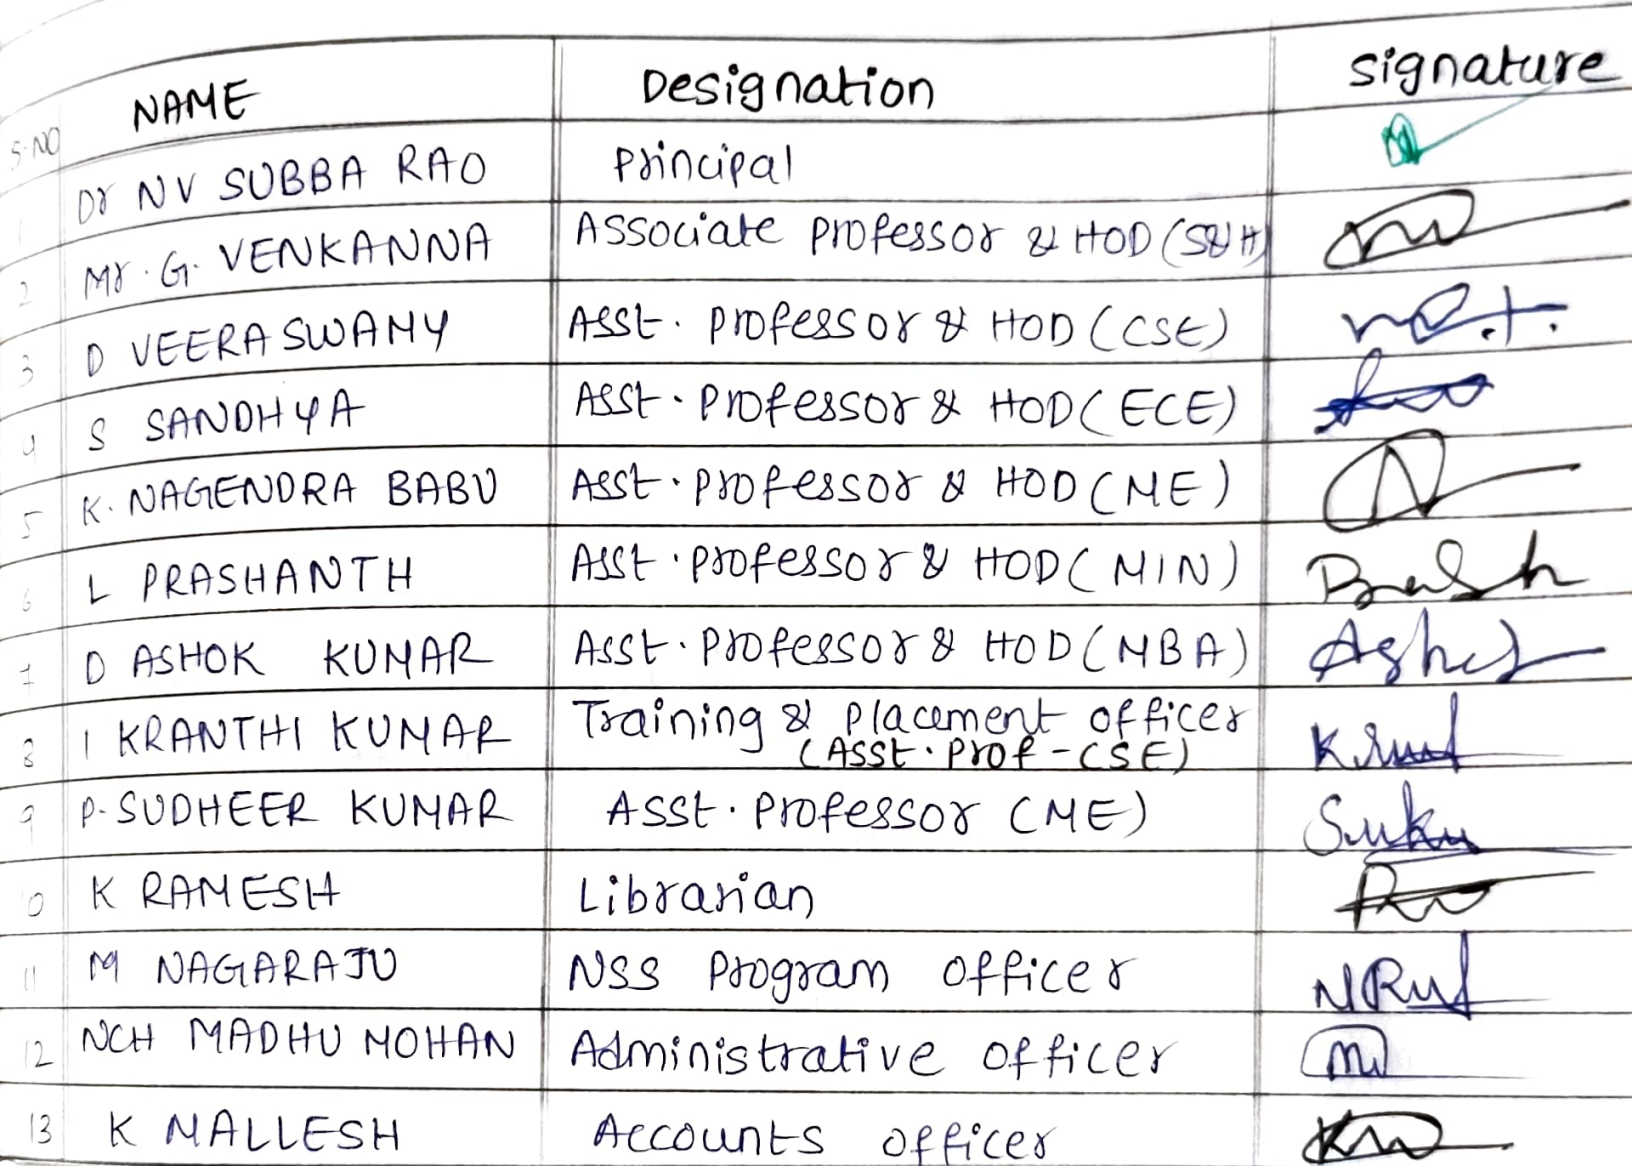 S.NO NAME Designation Signature
1 Dr NV SUBBA RAO Principal
2 Mr. G. VENKANNA Associate Professor & HOD (S&H)
3 D VEERASWAMY Asst. Professor & HOD (CSE)
4 S SANDHYA Asst. Professor & HOD (ECE)
5 K. NAGENDRA BABU Asst. Professor & HOD (ME)
6 L PRASHANTH Asst. Professor & HOD (MIN)
7 D ASHOK KUMAR Asst. Professor & HOD (MBA)
8 I KRANTHI KUMAR Training & Placement officer
(Asst. Prof - CSE)
9 P. SUDHEER KUMAR Asst. Professor (ME)
10 K RAMESH Librarian
11 M NAGARAJU NSS Program Officer
12 NCH MADHU MOHAN Administrative Officer
13 K MALLESH Accounts officer